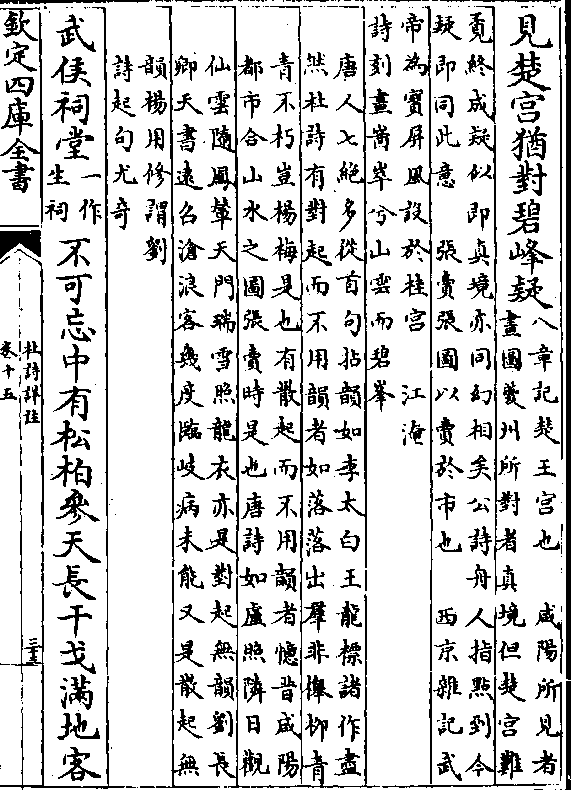 見楚宮猶對碧峰疑八章記楚王宮也 咸陽所見者
畫圖䕫州所對者真境但楚宮難
覓終成疑似即真境亦同幻相矣公詩舟人指點到今
疑即同此意 張賣張圖以賣於市也 西京雜記武
帝為寳屏風設於桂宮 江淹
詩刻畫崗崒兮山雲而碧峯
唐人七絶多從首句拈韻如李太白王龍標諸作盡
然杜詩有對起而不用韻者如落落出羣非櫸柳青
青不朽豈楊梅是也有散起而不用韻者憶昔咸陽
都市合山水之圖張賣時是也唐詩如盧照隣日觀
仙雲隨鳳輦天門瑞雪照龍衣亦是對起無韻劉長
卿天書遠召滄浪客幾度臨岐病未能又是散起無
韻楊用修謂劉
詩起句尤奇
武侯祠堂一作生祠不可忘中有松柏參天長干戈滿地客
欽定四庫全書
杜詩詳註
卷十五
三十三